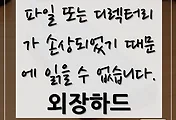 파일 또는 디렉터리
가 손상되었기 때문
에 읽을 수 없습니다.
외장하드